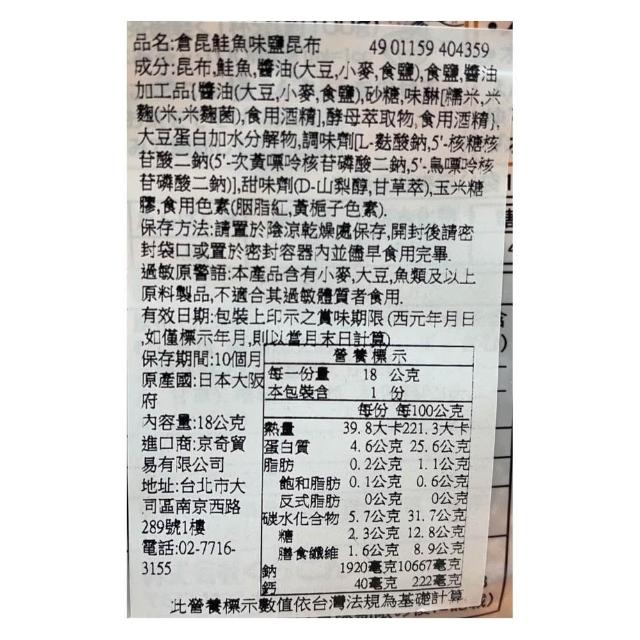 品名:倉昆鮭魚味鹽昆布 4901159 404359
成分:昆布,鮭魚,醬油(大豆,小麥,食鹽),食鹽,醬油
加工品{醬油(大豆,小麥,食鹽),砂糖,味醂[糯米,米
麴(米,米麴菌),食用酒精],酵母萃取物,食用酒精},
大豆蛋白加水分解物,調味劑[L-麩酸鈉,5'-核糖核
苷酸二鈉(5'-次黃嘌呤核苷磷酸二鈉,5'-鳥嘌呤核
苷磷酸二鈉)],甜味劑(D-山梨醇,甘草萃),玉米糖
膠,食用色素(胭脂紅,黃梔子色素).
保存方法:請置於陰涼乾燥處保存,開封後請密
封袋口或置於密封容器內並儘早食用完畢.
過敏原警語:本產品含有小麥,大豆,魚類及以上
原料製品,不適合其過敏體質者食用.
有效日期:包裝上印示之賞味期限(西元年月日
,如僅標示年月,則以當月末日計算)
保存期間:10個月
原產國:日本大阪
府
內容量:18公克
進口商:京奇貿
易有限公司
地址:台北市大
同區南京西路
289號1樓
電話:02-7716-
3155
營養標示
每一份量 18 公克
本包裝含 1 份
每份 每100公克
熱量 39.8大卡 221.3大卡
蛋白質 4.6公克 25.6公克
脂肪 0.2公克 1.1公克
飽和脂肪 0.1公克 0.6公克
反式脂肪 0公克 0公克
碳水化合物 5.7公克 31.7公克
糖 2.3公克 12.8公克
膳食纖維 1.6公克 8.9公克
鈉 1920毫克 10667毫克
鈣 40毫克 222毫克
此營養標示數值依台灣法規為基礎計算